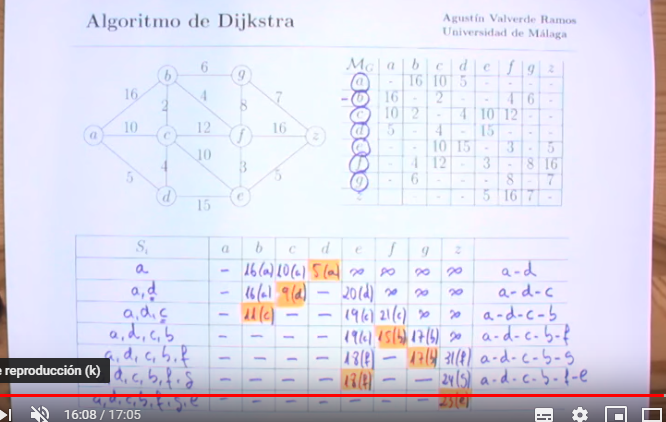 Algoritmo de Dijkstra
Agustín Valverde Ramos
Universidad de Málaga
a b c d e f g z
16 10 5 2 4 6 12 4 15 10 8 3 7 16 5
M_G a b c d e f g z
a - 16 10 5 - - - -
b 16 - 2 - - 4 6 -
c 10 2 - 4 10 12 - -
d 5 - 4 - 15 - - -
e - - 10 15 - 3 - 5
f - 4 12 - 3 - 8 16
g - 6 - - - 8 - 7
z - - - - 5 16 7 -
S_i a b c d e f g z
a - 16(a) 10(a) 5(a) ∞ ∞ ∞ ∞ a-d
a,d - 16(a) 9(d) - 20(d) ∞ ∞ ∞ a-d-c
a,d,c - 11(c) - - 19(c) 21(c) ∞ ∞ a-d-c-b
a,d,c,b - - - - 19(c) 15(b) 17(b) ∞ a-d-c-b-f
a,d,c,b,f - - - - 18(f) - 17(b) 31(f) a-d-c-b-g
d,c,b,f,g - - - - 18(f) - - 24(g) a-d-c-b-f-e
a,d,c,b,f,g,e - - - - - - - 23(e)
reproducción (k)
16:08 / 17:05